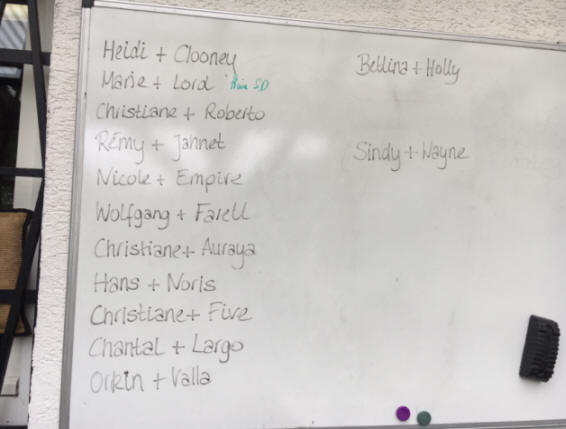 Heidi + Clooney
Marie + Lord
Christiane + Roberto
Rémy + Jannet
Nicole + Empire
Wolfgang + Farell
Christiane + Auraya
Hans + Noris
Christiane + Five
Chantal + Largo
Orkin + Valla
Bellina + Holly
Sindy + Wayne